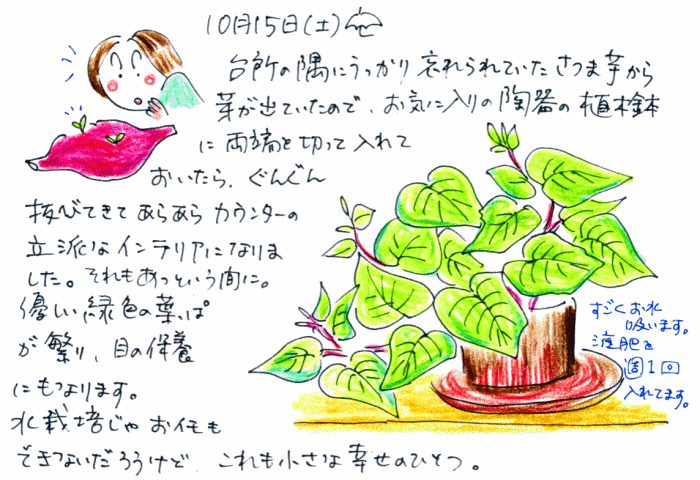 10月15日(土)
台所の隅にうっかり忘れられていたさつま芋から
芽が出ていたので、お気に入りの陶器の植木鉢
に両端を切って入れて
おいたら、ぐんぐん
伸びてきてあらあらカウンターの
立派なインテリアになりま
した。それもあっという間に。
優しい緑色の葉っぱ
が繁り、目の保養
にもなります。
水栽培じゃおイモも
できないだろうけど、これも小さな幸せのひとつ。
すごくお水
吸います。
液肥を
週1回
入れてます。